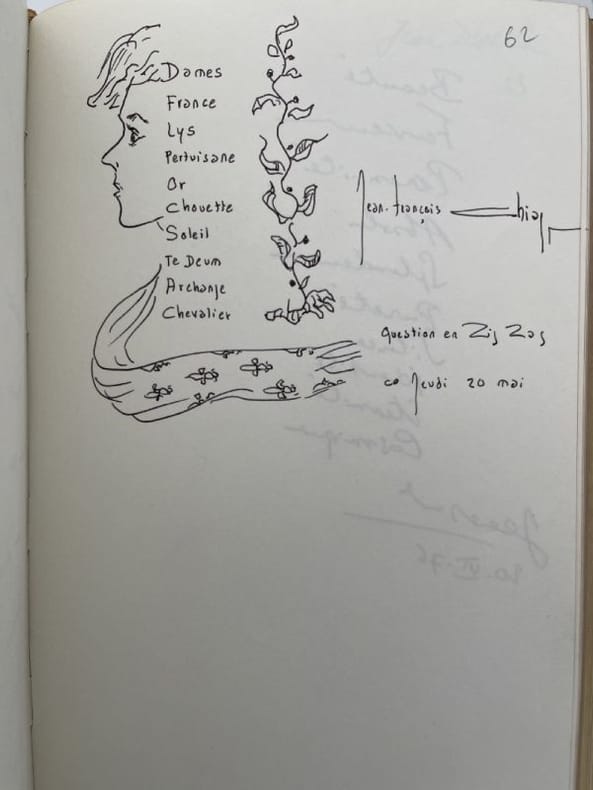 62
Dames
France
Lys
Pertuisane
Or
Chouette
Soleil
Te Deum
Archange
Chevalier
Jean-François
question en Zig Zag
ce Jeudi 20 mai